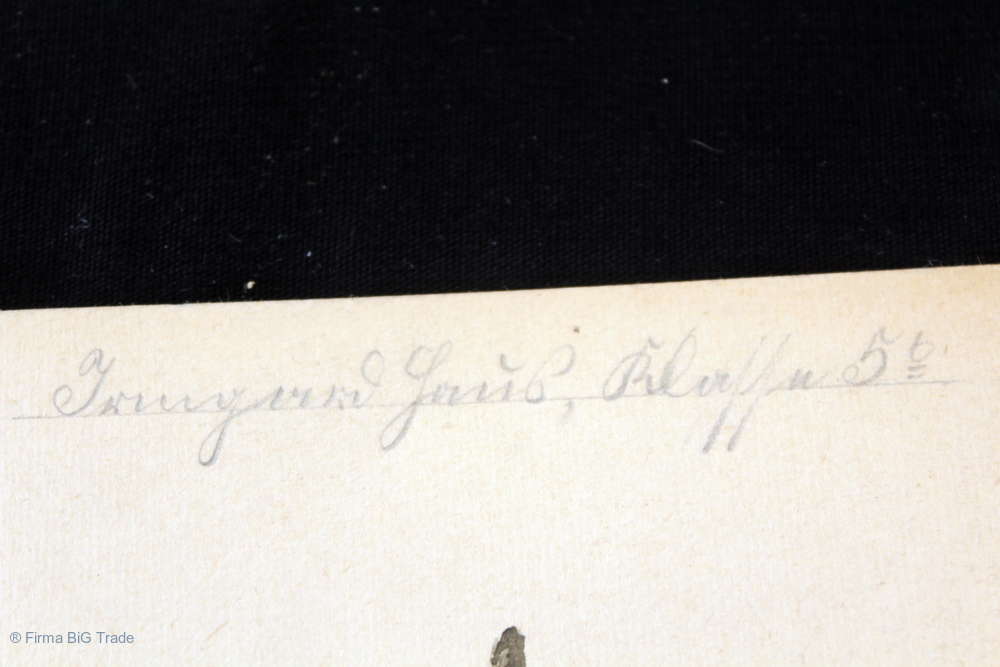 Irmgard Haus, Klasse 5b
® Firma BiG Trade